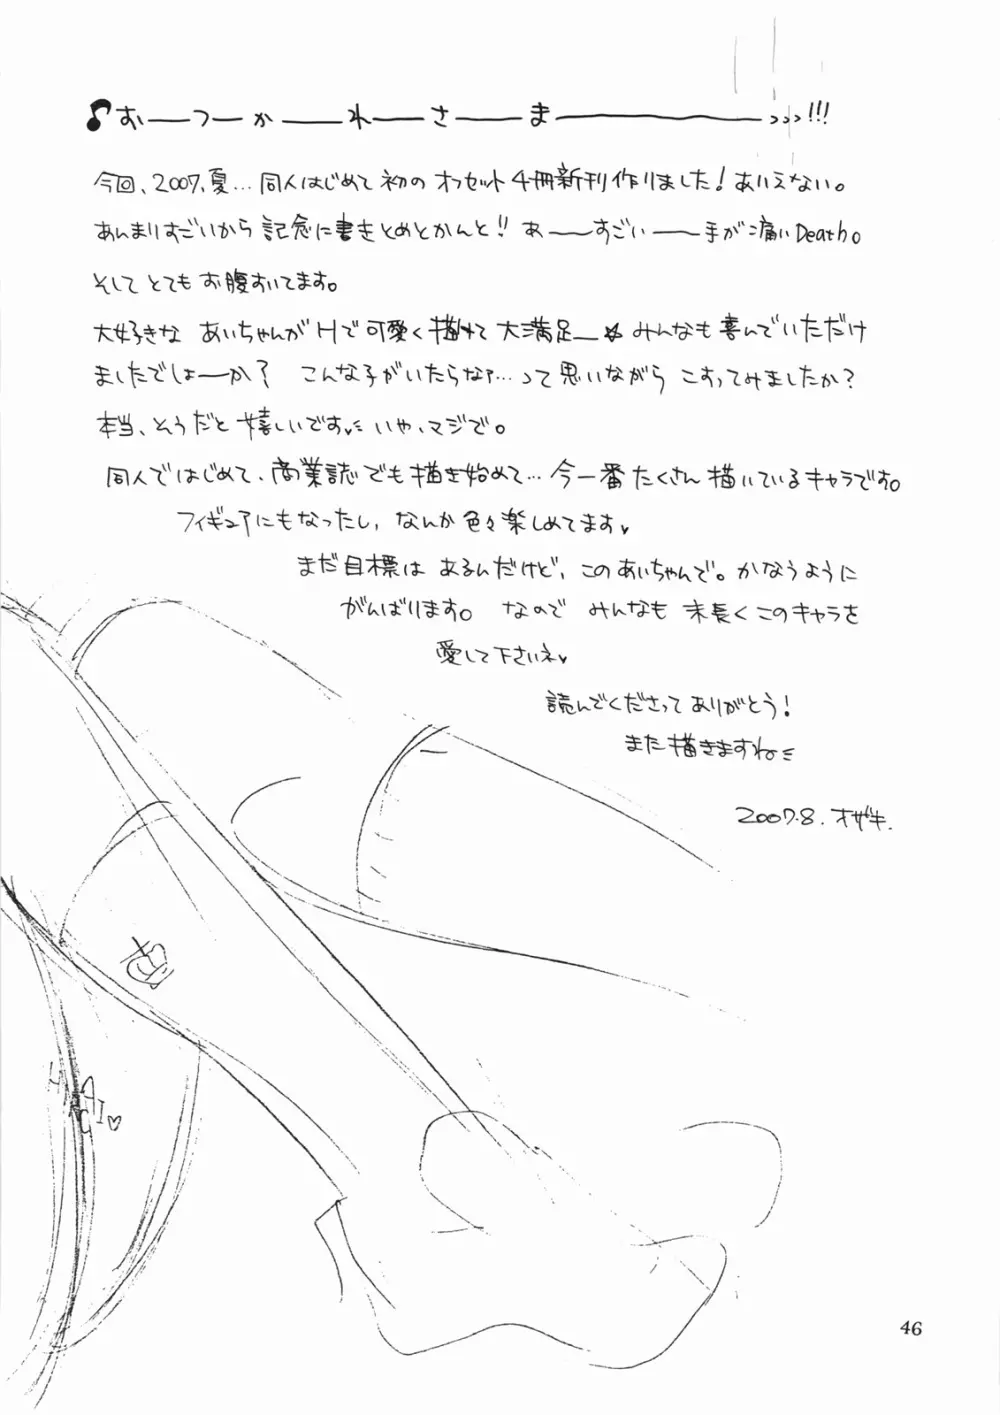 ♪おーつーかーれーさーまー>>>!!!
今回、2007、夏…同人はじめて初のオフセット4冊新刊作りました!ありえない。
あんまりすごいから記念に書きとめとかんと!!あーーすごいーー手が痛いDeath。
そしてとてもお腹すいてます。
大好きなあいちゃんがHで可愛く描けて大満足ー☆みんなも喜んでいただけ
ましたでしょーか?こんな子がいたらなァ…って思いながらこすってみましたか?
本当、そうだと嬉しいです♥いや、マジで。
同人ではじめて、商業誌でも描き始めて…今一番たくさん描いているキャラです。
フィギュアにもなったし、なんか色々楽しめてます♥
まだ目標はあるんだけど、このあいちゃんで。かなうように
がんばります。なのでみんなも末長くこのキャラを
愛して下さいネ♥
読んでくださってありがとう!
また描きますね
2007.8.オザキ.
AI♡
46